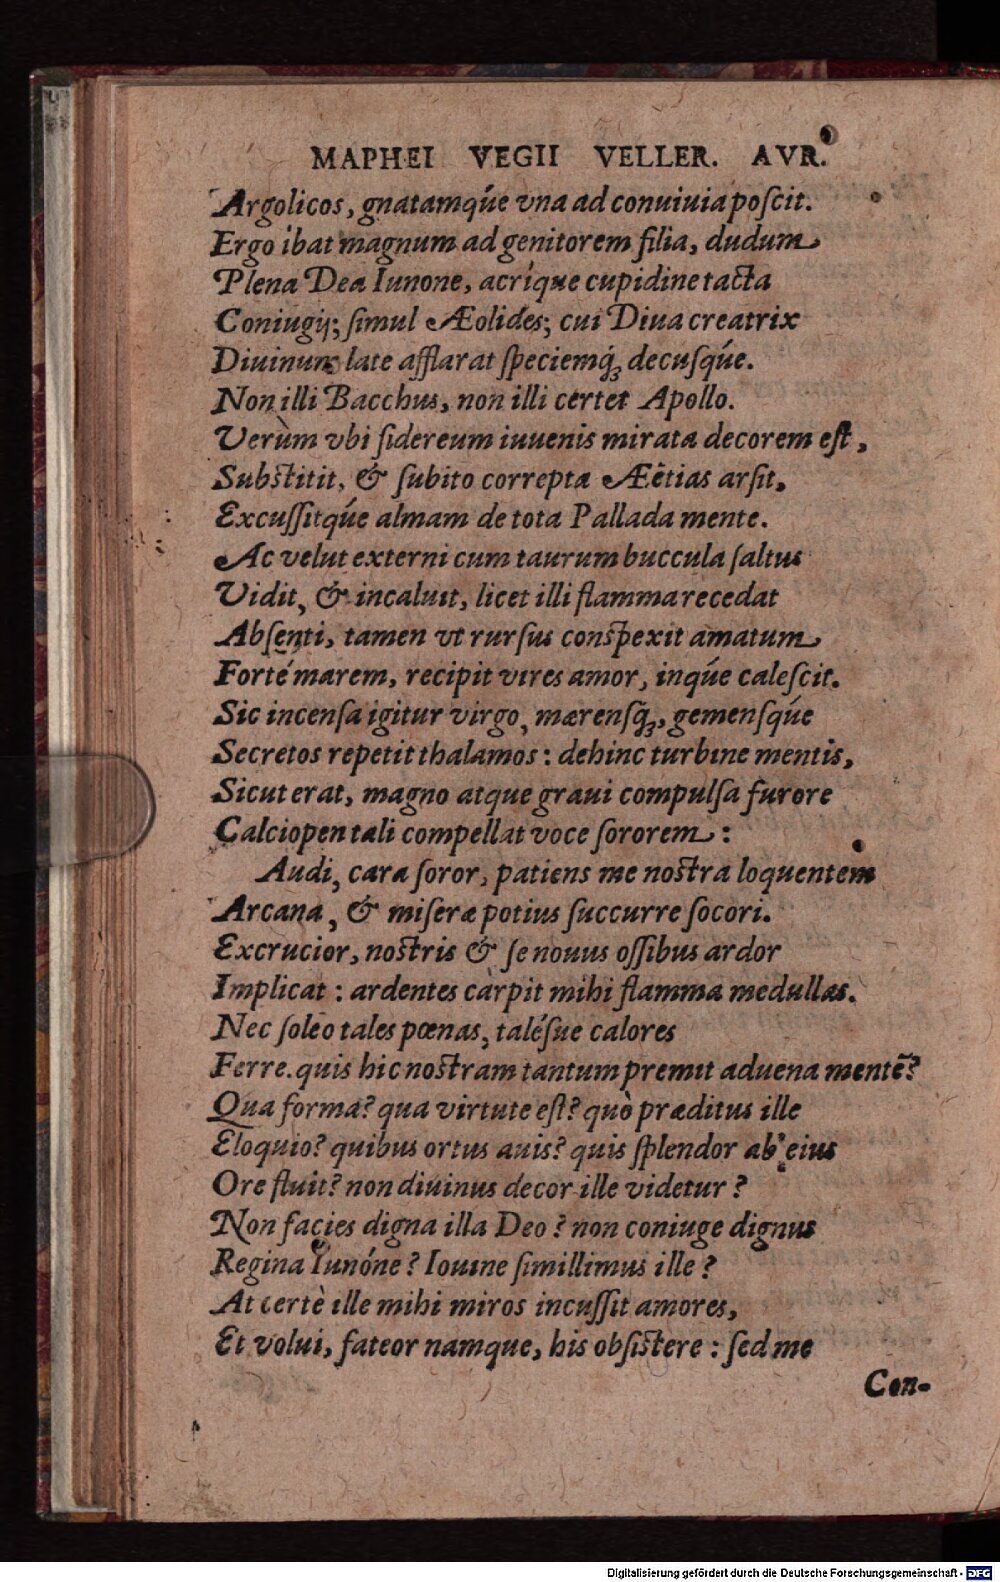 MAPHEI VEGII VELLER. AVR.
Argolicos, gnatamq́ue vna ad conuiuia poſcit.
Ergo ibat magnum ad genitorem filia, dudum
Plena Dea Iunone, acríque cupidine tacta
Coniugij; ſimul Æolides; cui Diua creatrix
Diuinum late afflarat ſpeciemq́ꝫ decuſq́ue.
Non illi Bacchus, non illi certet Apollo.
Verùm vbi ſidereum iuuenis mirata decorem eſt,
Subſtitit, & ſubito correpta Æëtias arſit,
Excuſſitq́ue almam de tota Pallada mente.
Ac velut externi cum taurum buccula ſaltus
Vidit, & incaluit, licet illi flamma recedat
Abſenti, tamen vt rurſus conſpexit amatum
Forté marem, recipit vires amor, inq́ue caleſcit.
Sic incenſa igitur virgo, mærenſq́ꝫ, gemenſq́ue
Secretos repetit thalamos: dehinc turbine mentis,
Sicut erat, magno atque graui compulſa furore
Calciopen tali compellat voce ſororem:
Audi, cara ſoror, patiens me noſtra loquentem
Arcana, & miſeræ potius ſuccurre ſocori.
Excrucior, noſtris & ſe nouus oſſibus ardor
Implicat: ardentes carpit mihi flamma medullas.
Nec ſoleo tales pœnas, taléſue calores
Ferre. quis hic noſtram tantum premit aduena mentē?
Qua forma? qua virtute eſt? quò præditus ille
Eloquio? quibus ortus auis? quis ſplendor ab eius
Ore fluit? non diuinus decor ille videtur?
Non facies digna illa Deo? non coniuge dignus
Regina Iunóne? Iouine ſimillimus ille?
At certè ille mihi miros incuſſit amores,
Et volui, fateor namque, his obſiſtere: ſed me
Con-
Digitalisierung gefördert durch die Deutsche Forschungsgemeinschaft - DFG